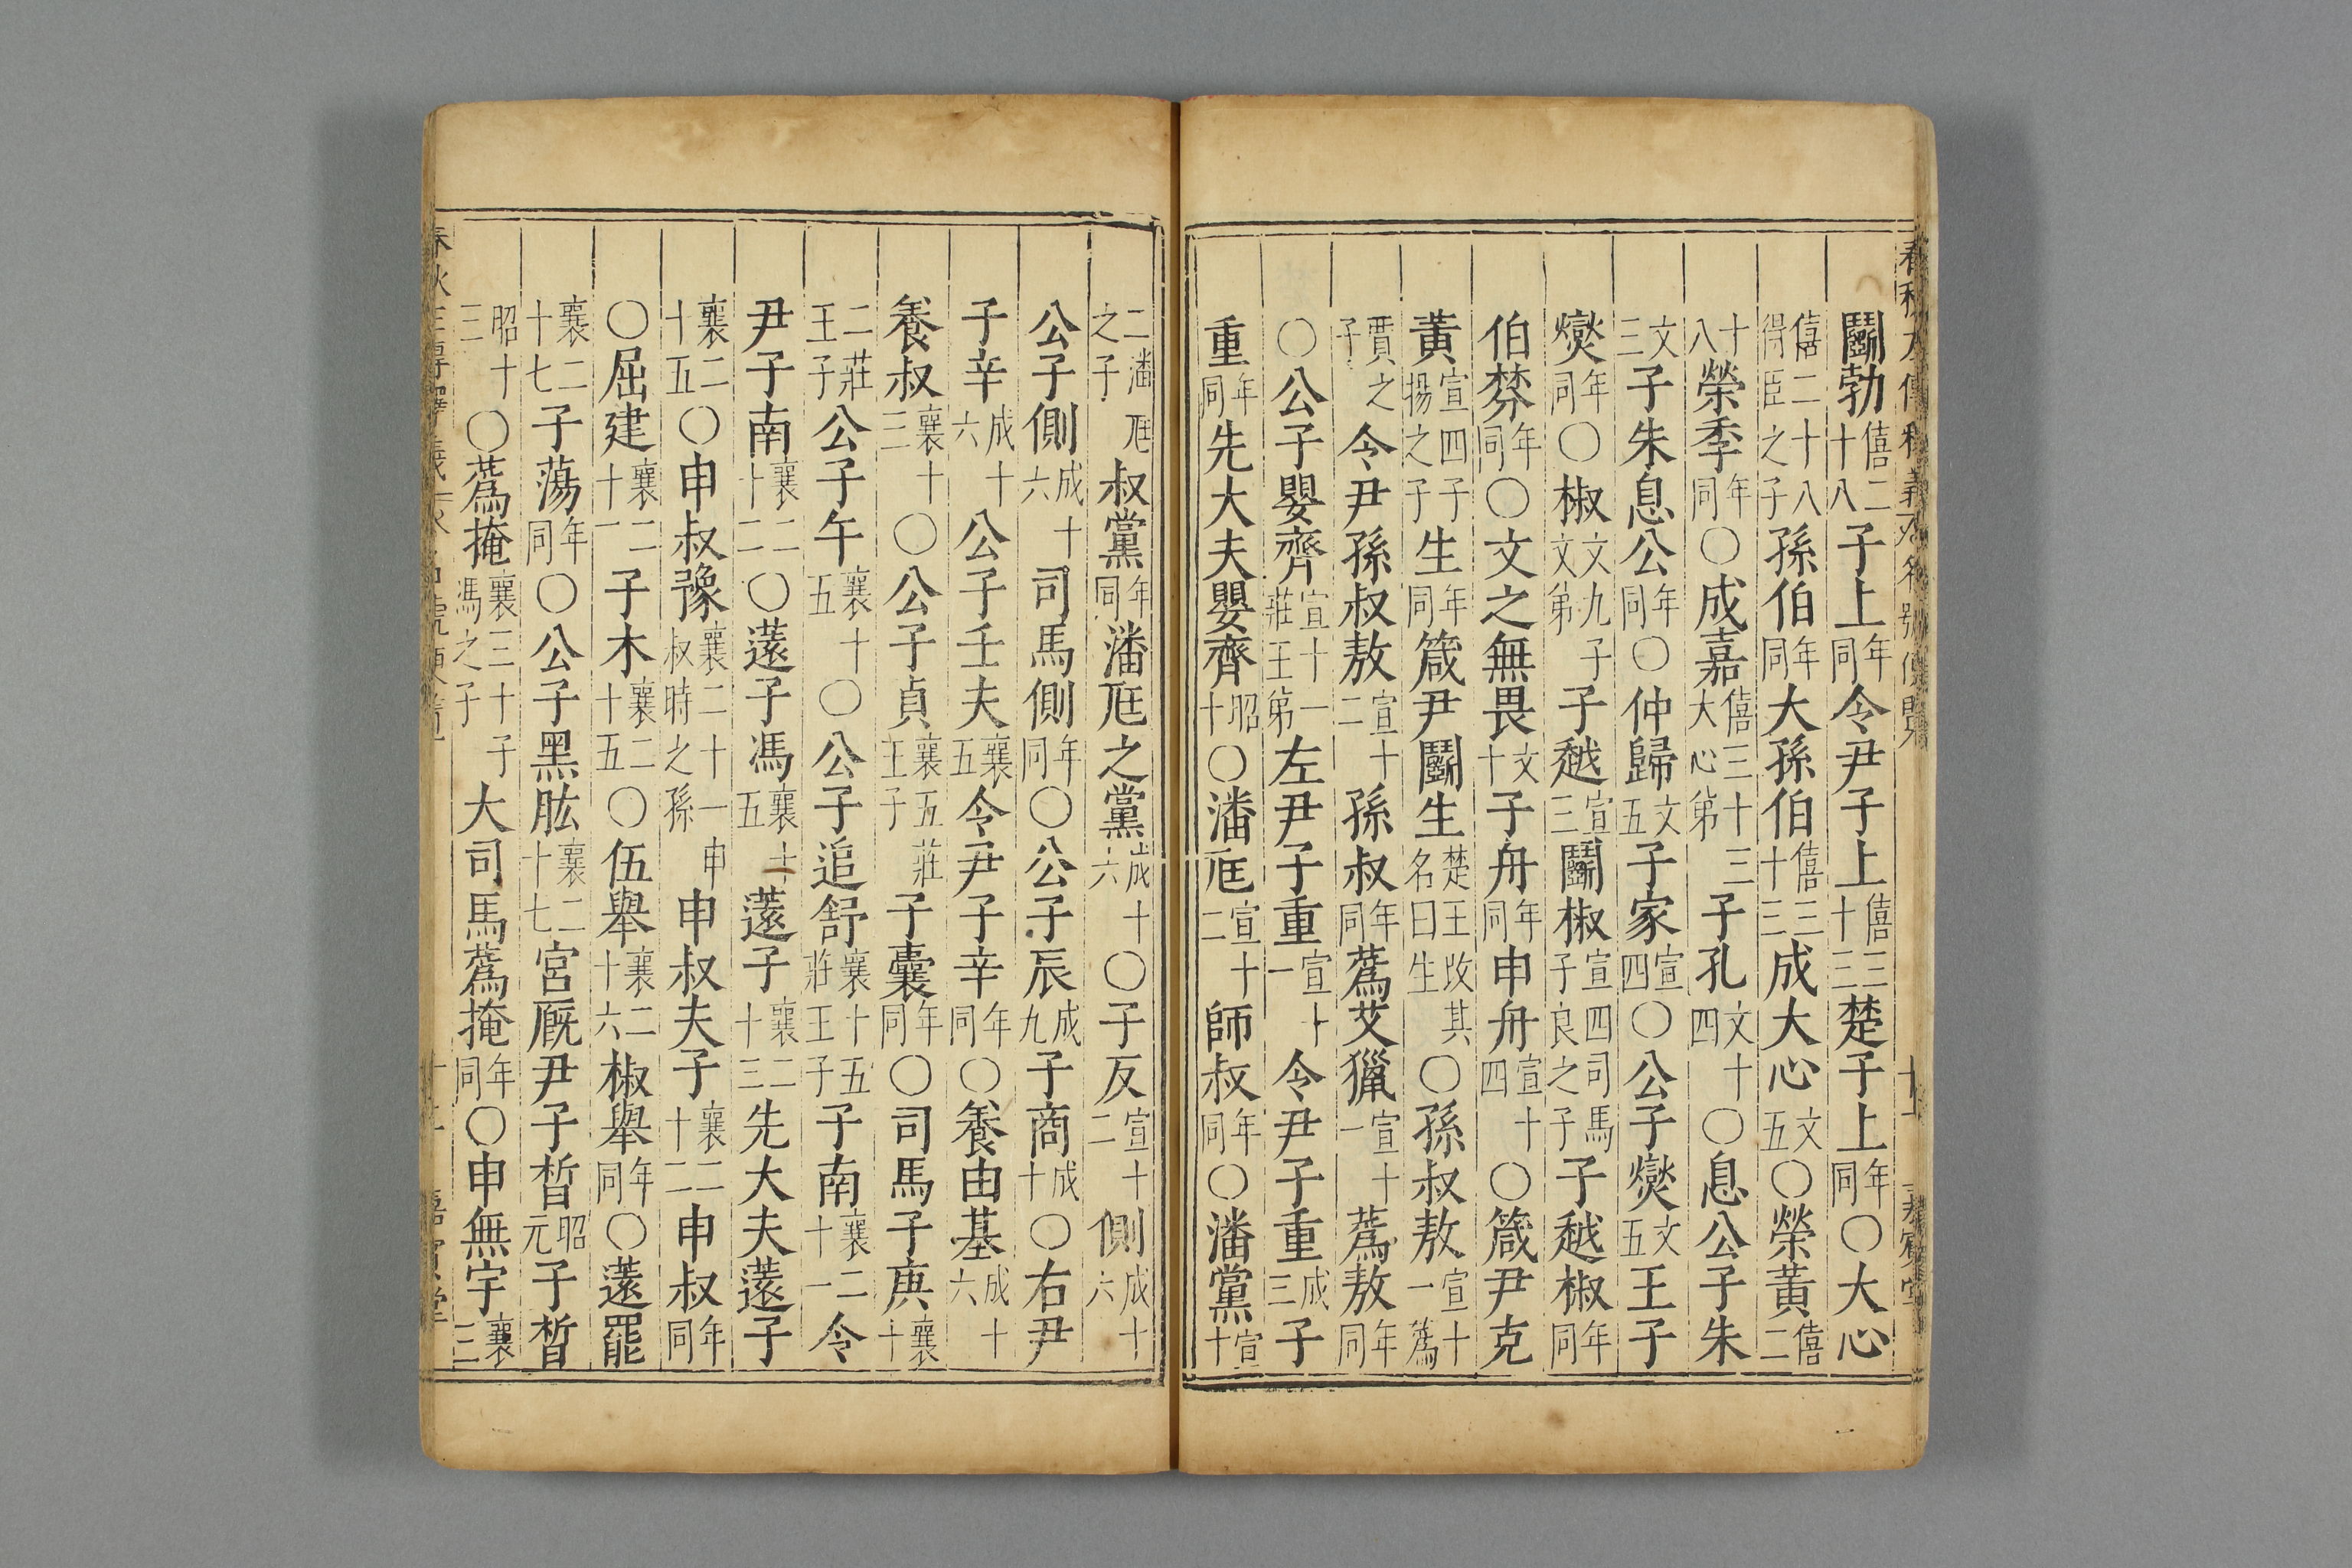 春秋左傳釋義
名號便覽
鬬勃僖二十八子上年同令尹子上僖三十三楚子上年同○大心
僖二十八得臣之子孫伯年同大孫伯僖三十三成大心文五○榮黃僖二
十八榮季年同○成嘉僖三十三大心弟子孔文十四○息公子朱
文三子朱息公年同○仲歸文五子家宣四○公子燮文五王子
燮年同○椒文九子文弟子越宣三鬬椒宣四司馬子良之子子越椒年同
伯棼年同○文之無畏文十子舟年同申舟宣十四○箴尹克
黃宣四子揚之子生年同箴尹鬬生楚王改其名曰生○孫叔敖宣十一蒍
賈之子令尹孫叔敖宣十二孫叔年同蒍艾獵宣十一蒍敖年同
○公子嬰齊宣十一莊王弟左尹子重宣十一令尹子重成三子
重年同先大夫嬰齊昭十○潘尫宣十二師叔年同○潘黨宣十
二潘尫之子叔黨年同潘尫之黨成十六○子反宣十二側成十六
公子側成十六司馬側年同○公子辰成九子商成十○右尹
子辛成十六公子壬夫襄五令尹子辛年同○養由基成十六
養叔襄十三○公子貞襄五莊王子子囊年同○司馬子庚襄十
二莊王子公子午襄十五○公子追舒襄十五莊王子子南襄二十一令
尹子南襄二十二○薳子馮襄十五薳子襄二十三先大夫薳子
襄二十五○申叔豫襄二十一申叔時之孫申叔夫子襄二十二申叔年同
○屈建襄二十一子木襄二十五○伍舉襄二十六椒舉年同○薳罷
襄二十七子蕩年同○公子黑肱襄二十七宮廐尹子晳昭元子晳
昭十三○蒍掩襄三十子馮之子大司馬蒍掩年同○申無宇襄三